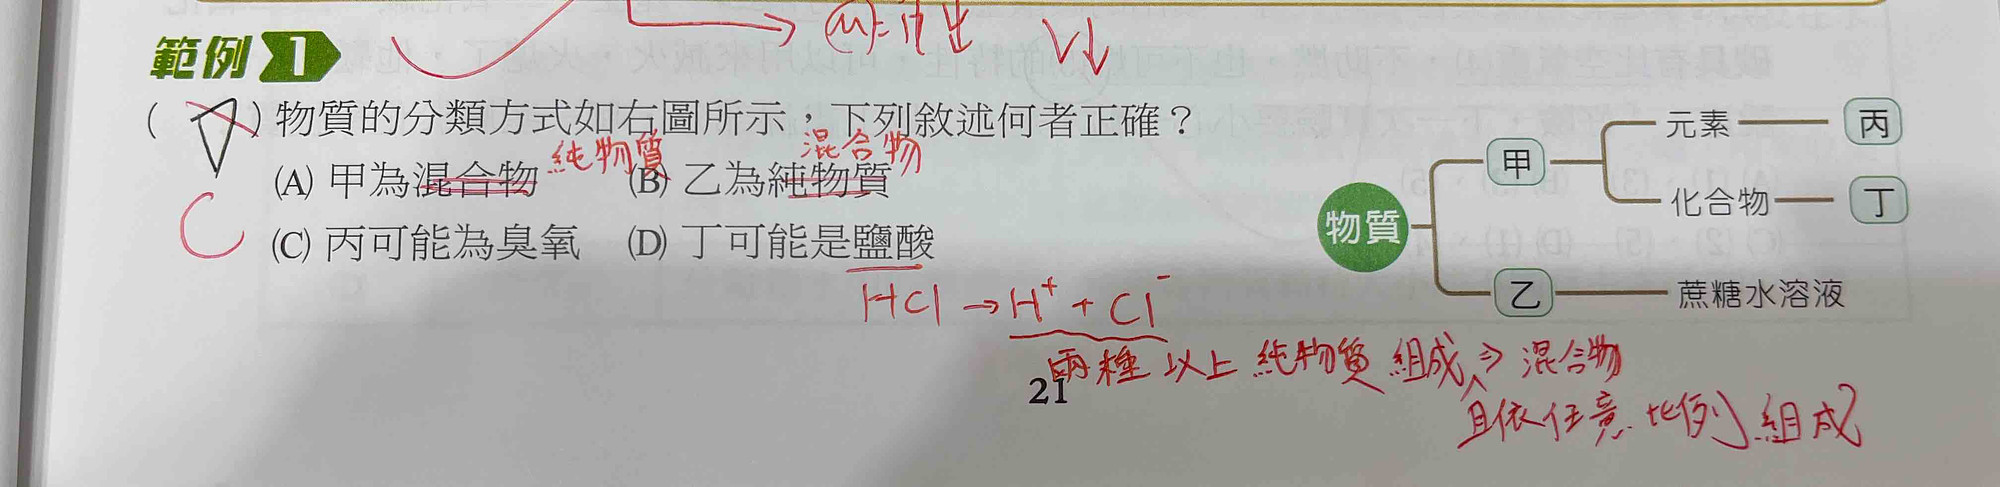 範例 1
( ) 物質的分類方式如右圖所示,下列敘述何者正確?
純物質 混合物
(A) 甲為混合物 (B) 乙為純物質
C (C) 丙可能為臭氧 (D) 丁可能是鹽酸
物質
甲
元素 丙
化合物 丁
乙 蔗糖水溶液
HCl → H⁺ + Cl⁻
兩種以上純物質組成 ⇒ 混合物
且依任意比例組成
21